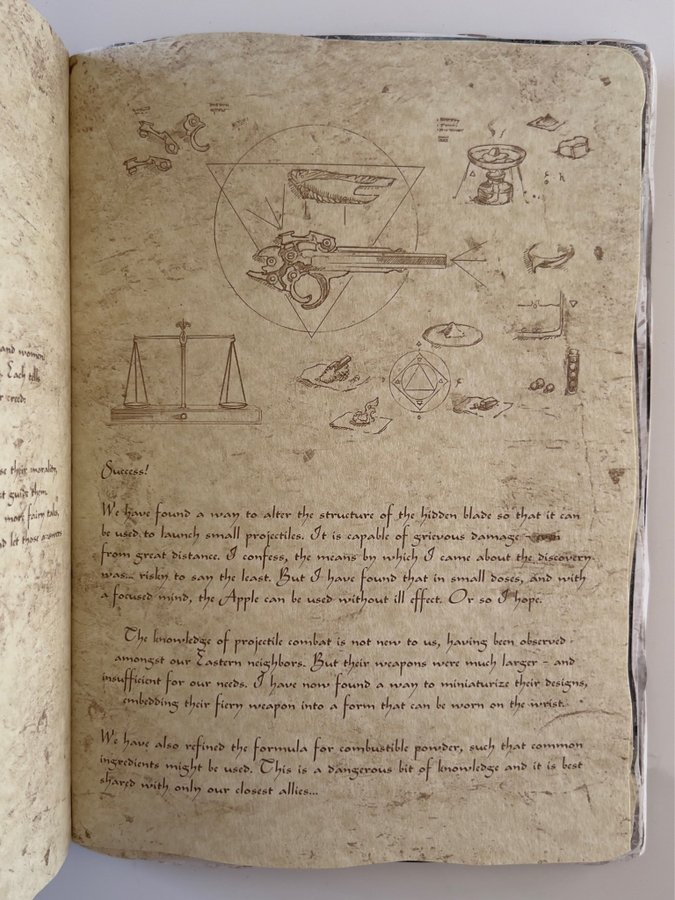 and women
Each tells
creed:
their morals,
guide them
more fairy tale,
and let those answers
Success!
We have found a way to alter the structure of the hidden blade so that it can
be used to launch small projectiles. It is capable of grievous damage - even
from great distance. I confess, the means by which I came about the discovery
was... risky to say the least. But I have found that in small doses, and with
a focused mind, the Apple can be used without ill effect. Or so I hope.
The knowledge of projectile combat is not new to us, having been observed
amongst our Eastern neighbors. But their weapons were much larger - and
insufficient for our needs. I have now found a way to miniaturize their designs,
embedding their fiery weapon into a form that can be worn on the wrist.
We have also refined the formula for combustible powder, such that common
ingredients might be used. This is a dangerous bit of knowledge and it is best
shared with only our closest allies...